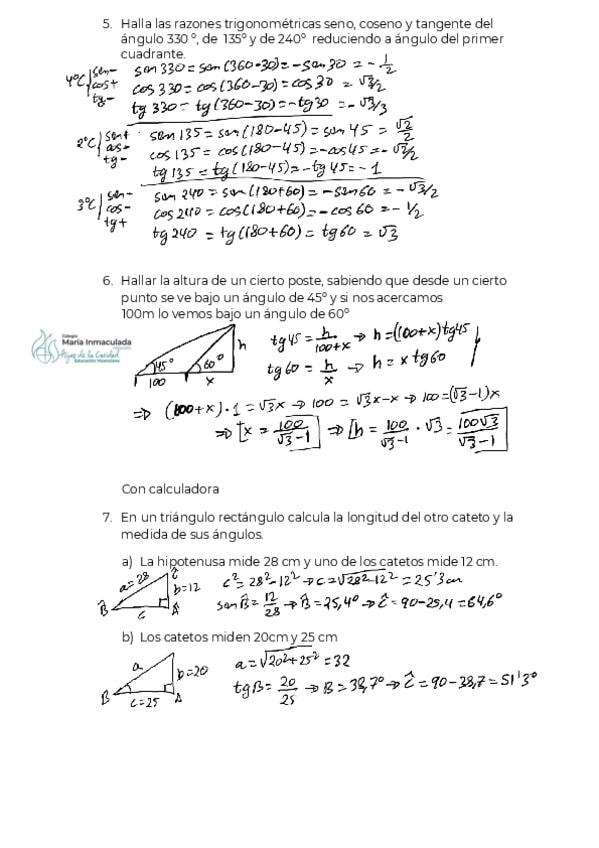 5. Halla las razones trigonométricas seno, coseno y tangente del
ángulo 330 º, de 135º y de 240º reduciendo a ángulo del primer
cuadrante.
4ºC | sen - cos + tg -
sen 330 = sen (360-30) = - sen 30 = - 1/2
cos 330 = cos (360-30) = cos 30 = √3/2
tg 330 = tg (360-30) = - tg 30 = - √3/3
2ºC | sen + cos - tg -
sen 135 = sen (180-45) = sen 45 = √2/2
cos 135 = cos (180-45) = - cos 45 = - √2/2
tg 135 = tg (180-45) = - tg 45 = - 1
3ºC | sen - cos - tg +
sen 240 = sen (180+60) = - sen 60 = - √3/2
cos 240 = cos (180+60) = - cos 60 = - 1/2
tg 240 = tg (180+60) = tg 60 = √3
6. Hallar la altura de un cierto poste, sabiendo que desde un cierto
punto se ve bajo un ángulo de 45º y si nos acercamos
100m lo vemos bajo un ángulo de 60º
Colegio
María Inmaculada
Hijas de la Caridad
45º 60º h
100 x
tg 45 = h/100+x → h = (100+x) tg 45
tg 60 = h/x → h = x tg 60
⇒ (100+x) · 1 = √3x → 100 = √3x - x → 100 = (√3-1)x
⇒ x = 100/√3-1 ⇒ h = 100/√3-1 · √3 = 100√3/√3-1
Con calculadora
7. En un triángulo rectángulo calcula la longitud del otro cateto y la
medida de sus ángulos.
a) La hipotenusa mide 28 cm y uno de los catetos mide 12 cm.
a=28 Ĉ b=12 B̂ c A
c² = 28² - 12² → c = √28²-12² = 25'3 cm
sen B̂ = 12/28 → B̂ = 25,4º → Ĉ = 90 - 25,4 = 64,6º
b) Los catetos miden 20cm y 25 cm
a b=20 B c=25 A
a = √20²+25² = 32
tg B = 20/25 → B = 38,7º → Ĉ = 90 - 38,7 = 51'3º